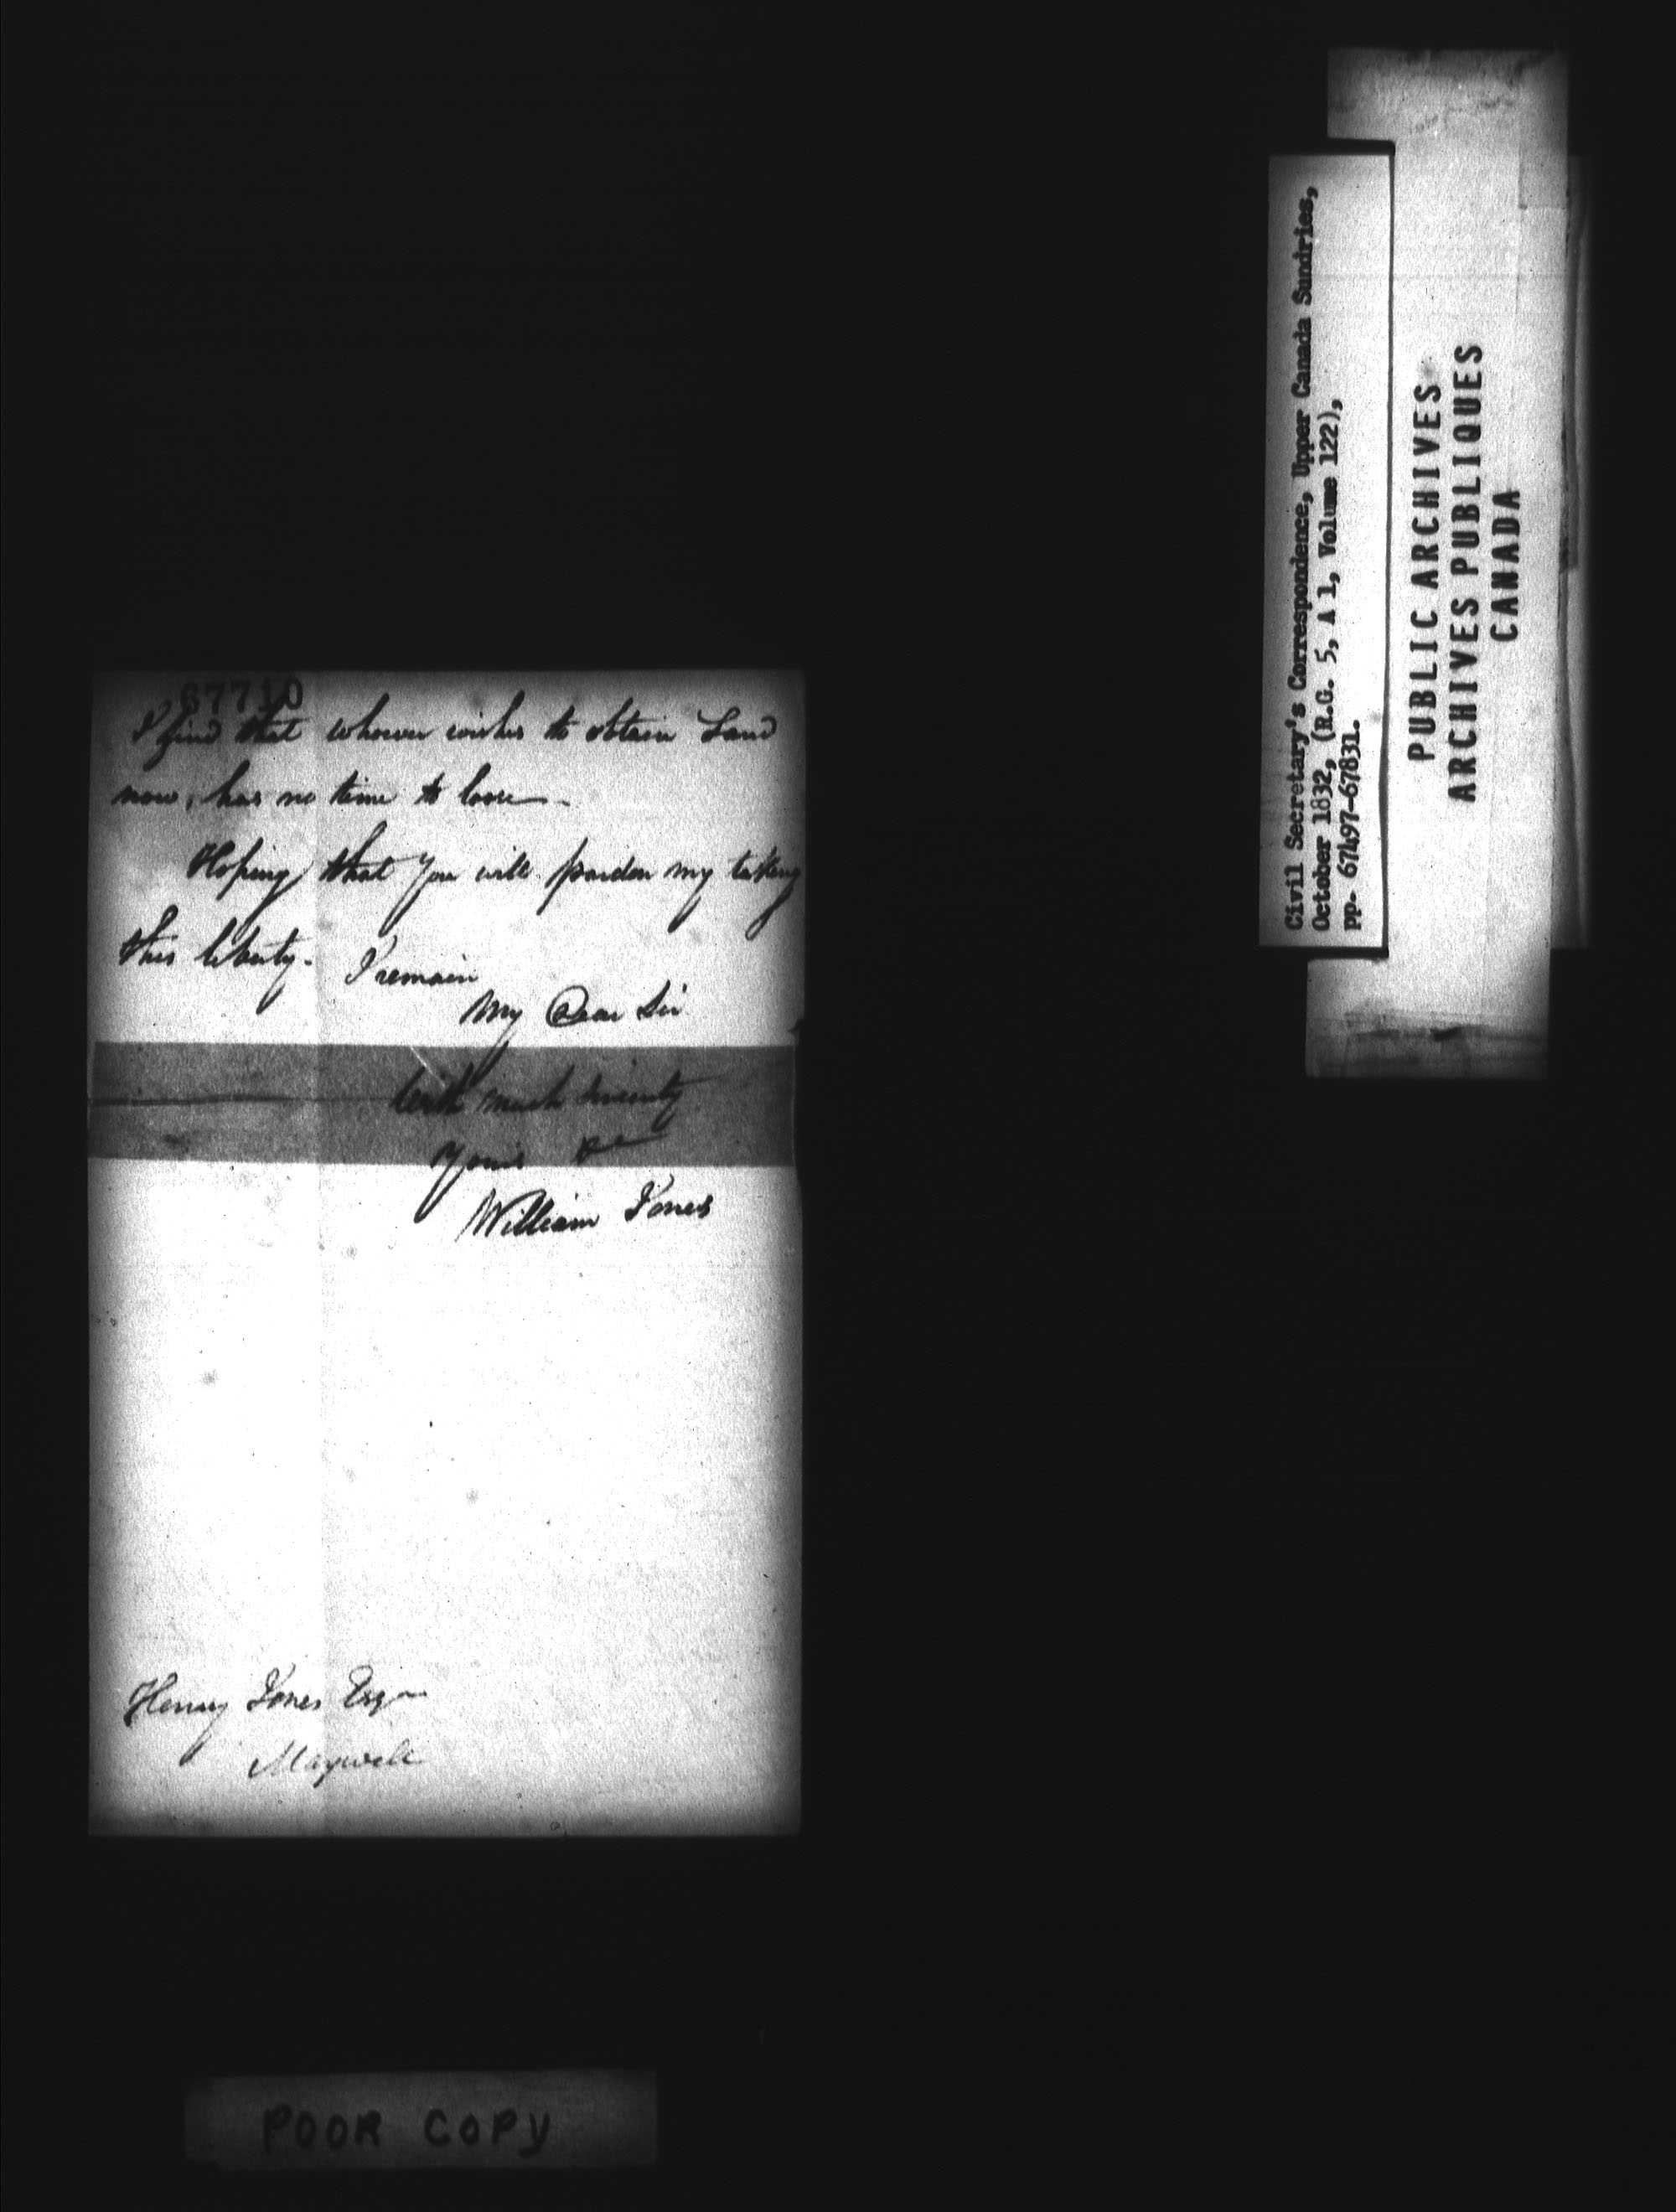 67710
I find that whoever wishes to obtain Land
now, has no time to loose —
Hoping that you will pardon my taking
this liberty - I remain
My Dear Sir
With much sincerity
Yours &c
William Jones
Henry Jones Esqr
Maxwell
POOR COPY
Civil Secretary's Correspondence, Upper Canada Sundries,
October 1832, (R.G. 5, A 1, Volume 122),
pp. 67497-67831.
PUBLIC ARCHIVES
ARCHIVES PUBLIQUES
CANADA